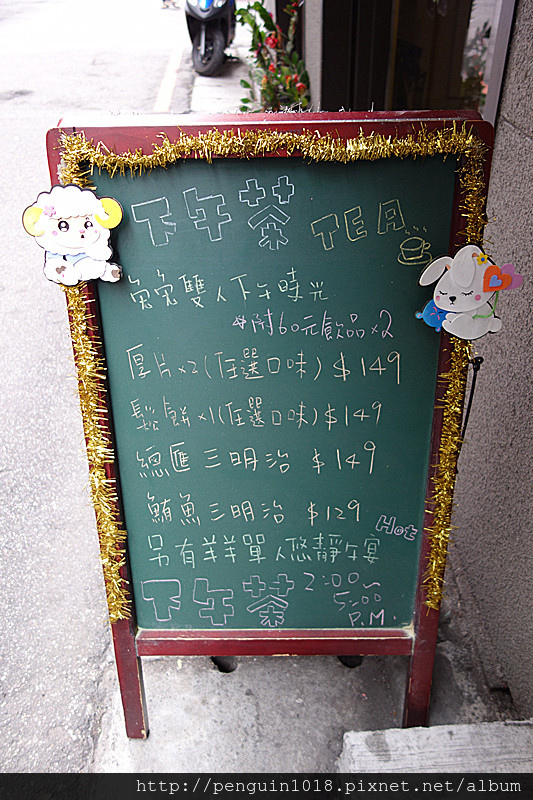 下午茶 TEA
兔兔雙人下午時光
附60元飲品x2
厚片x2(任選口味) $149
鬆餅x1(任選口味) $149
總匯三明治 $149
鮪魚三明治 $129
Hot
另有羊羊單人悠靜午宴
下午茶 2:00~
5:00
P.M.
http://penguin1018.pixnet.net/album